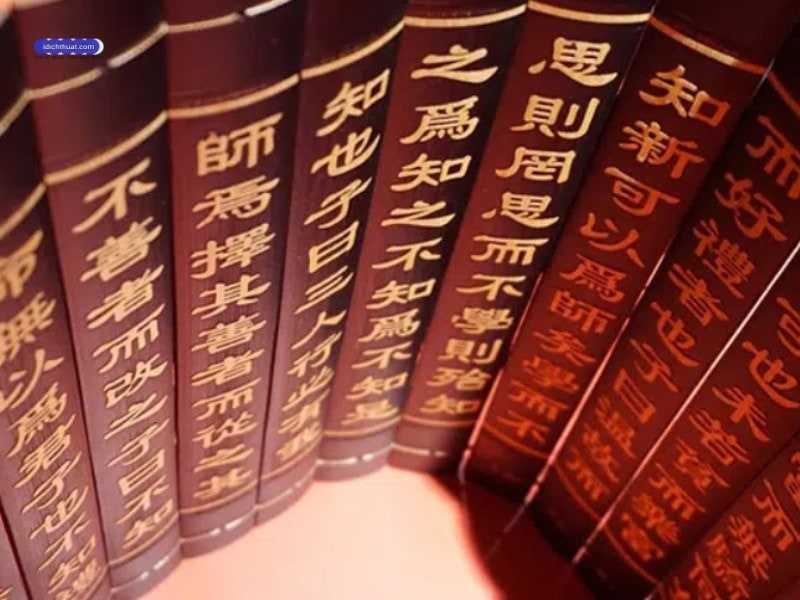 idichthuat.com
而無驕何
可也未若貧而樂富
而好禮者也子曰溫故而
知新可以爲師矣學而不
思則罔思而不學則殆知
之爲知之不知爲不知是
知也子曰三人行必有我
師焉擇其善者而從之其
不善者而改之子曰不知
命無以爲君子也不知禮